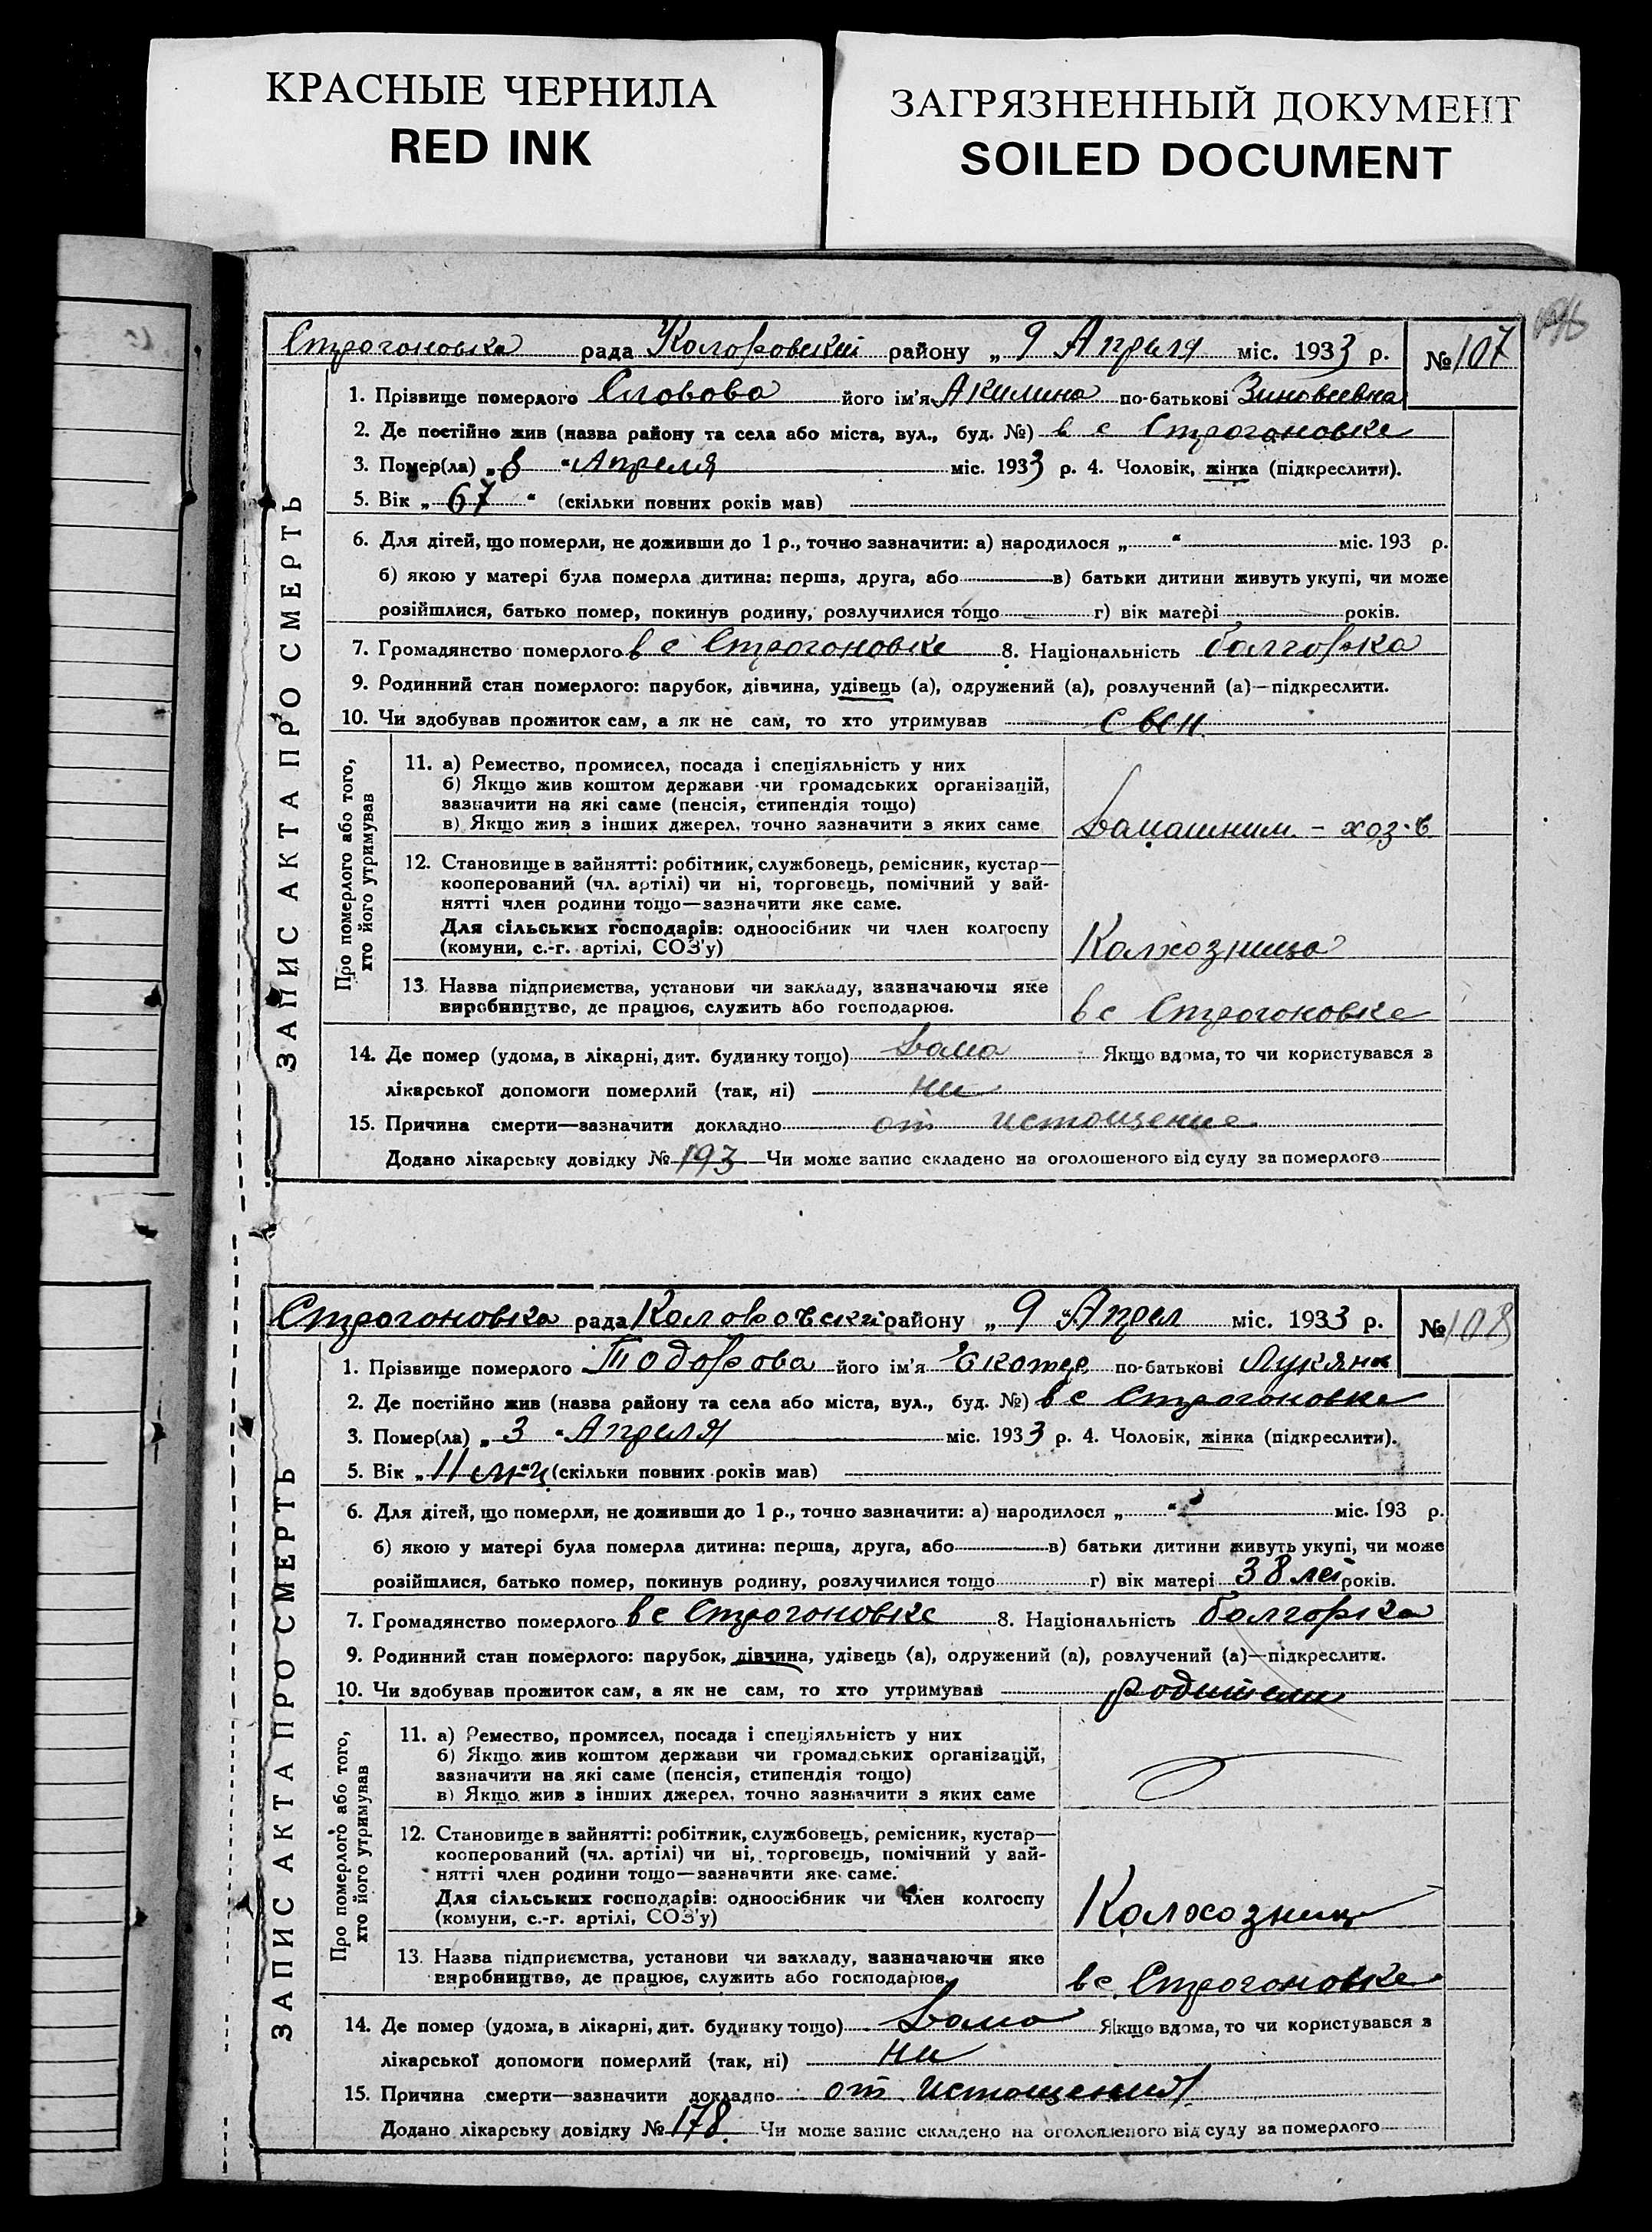 КРАСНЫЕ ЧЕРНИЛА
RED INK
ЗАГРЯЗНЕННЫЙ ДОКУМЕНТ
SOILED DOCUMENT
Строгоновка рада Коларовский району „ 9 Апреля міс. 1933 р. № 107
1. Прізвище померлого його ім'я Акилина по-батькові Зиновеевна
2. Де постійно жив (назва району та села або міста, вул., буд. №) в с Строгоновке
3. Помер(ла) „ 8 “ Апреля міс. 1933 р. 4. Чоловік, жінка (підкреслити).
5. Вік „ 67 “ (скільки повних років мав)
6. Для дітей, що померли, не доживши до 1 р., точно зазначити: а) народилося „ “ міс. 193 р.
б) якою у матері була померла дитина: перша, друга, або в) батьки дитини живуть укупі, чи може
розійшлися, батько помер, покинув родину, розлучилися тощо г) вік матері років.
7. Громадянство померлого в с Строгоновке 8. Національність болгорка
9. Родинний стан померлого: парубок, дівчина, удівець (а), одружений (а), розлучений (а)—підкреслити.
10. Чи здобував прожиток сам, а як не сам, то хто утримував
ЗАПИС АКТА ПРО СМЕРТЬ
Про померлого або того,
хто його утримував
11. а) Ремество, промисел, посада і спеціяльність у них
б) Якщо жив коштом держави чи громадських організацій,
зазначити на які саме (пенсія, стипендія тощо)
в) Якщо жив з інших джерел, точно зазначити з яких саме Домашним - хоз-в
12. Становище в зайнятті: робітник, службовець, ремісник, кустар—
кооперований (чл. артілі) чи ні, торговець, помічний у зай-
нятті член родини тощо—зазначити яке саме.
Для сільських господарів: одноосібник чи член колгоспу
(комуни, с.-г. артілі, СОЗ'у) Колхозница
13. Назва підприємства, установи чи закладу, зазначаючи яке
виробництво, де працює, служить або господарює. в с Строгоновке
14. Де помер (удома, в лікарні, дит. будинку тощо) Дома Якщо вдома, то чи користувався з
лікарської допомоги померлий (так, ні) ни
15. Причина смерти—зазначити докладно от истощение
Додано лікарську довідку № 193 Чи може запис складено на оголошеного від суду за померлого
Строгоновка рада Коларовский району „ 9 “ Апрел міс. 1933 р. № 108
1. Прізвище померлого Тодорова його ім'я Екатер по-батькові Лукян
2. Де постійно жив (назва району та села або міста, вул., буд. №) в с Строгоновке
3. Помер(ла) „ 3 “ Апреля міс. 1933 р. 4. Чоловік, жінка (підкреслити).
5. Вік „ 11 (скільки повних років мав)
6. Для дітей, що померли, не доживши до 1 р., точно зазначити: а) народилося „ “ міс. 193 р.
б) якою у матері була померла дитина: перша, друга, або в) батьки дитини живуть укупі, чи може
розійшлися, батько помер, покинув родину, розлучилися тощо г) вік матері 38 лет років.
7. Громадянство померлого в с Строгоновке 8. Національність болгорка
9. Родинний стан померлого: парубок, дівчина, удівець (а), одружений (а), розлучений (а)—підкреслити.
10. Чи здобував прожиток сам, а як не сам, то хто утримував родители
ЗАПИС АКТА ПРО СМЕРТЬ
Про померлого або того,
хто його утримував
11. а) Ремество, промисел, посада і спеціяльність у них
б) Якщо жив коштом держави чи громадських організацій,
зазначити на які саме (пенсія, стипендія тощо)
в) Якщо жив з інших джерел, точно зазначити з яких саме
12. Становище в зайнятті: робітник, службовець, ремісник, кустар—
кооперований (чл. артілі) чи ні, торговець, помічний у зай-
нятті член родини тощо—зазначити яке саме.
Для сільських господарів: одноосібник чи член колгоспу
(комуни, с.-г. артілі, СОЗ'у) Колхозниц
13. Назва підприємства, установи чи закладу, зазначаючи яке
виробництво, де працює, служить або господарює. в с. Строгоновке
14. Де помер (удома, в лікарні, дит. будинку тощо) Дома Якщо вдома, то чи користувався з
лікарської допомоги померлий (так, ні) ни
15. Причина смерти—зазначити докладно от истощения
Додано лікарську довідку № 178. Чи може запис складено на оголошеного від суду за померлого